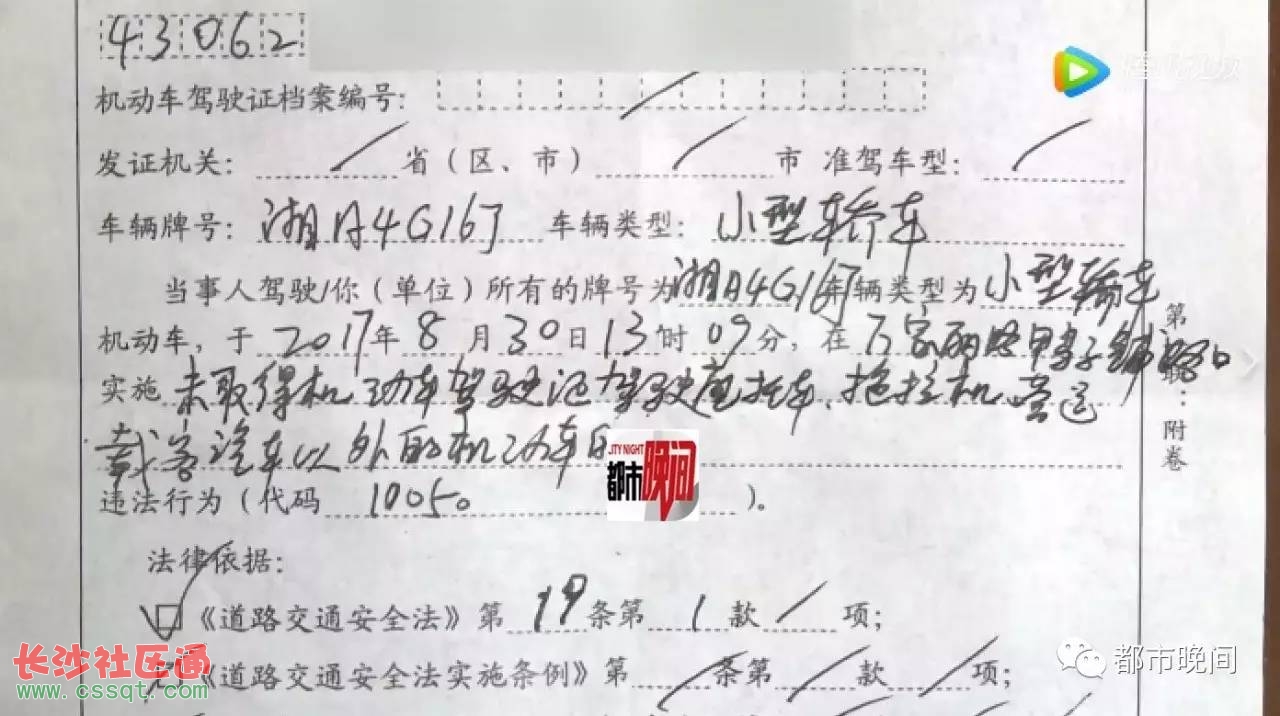 43062
腾讯视频
机动车驾驶证档案编号: /
发证机关: / 省(区、市) / 市 准驾车型: /
车辆牌号: 湘A4G167 车辆类型: 小型轿车
当事人驾驶/你(单位)所有的牌号为湘A4G167车辆类型为小型轿车
机动车, 于2017年8月30日13时09分, 在万家丽路鸭子铺路口
实施未取得机动车驾驶证驾驶摩托车、拖拉机、营运
载客汽车以外的机动车的
CITY NIGHT
都市晚间
违法行为(代码 1005。)。
第 联: 附卷
法律依据:
☑《道路交通安全法》第19条第1款/项;
《道路交通安全法实施条例》第/条第/款/项;
长沙社区通
www.cssqt.com
都市晚间